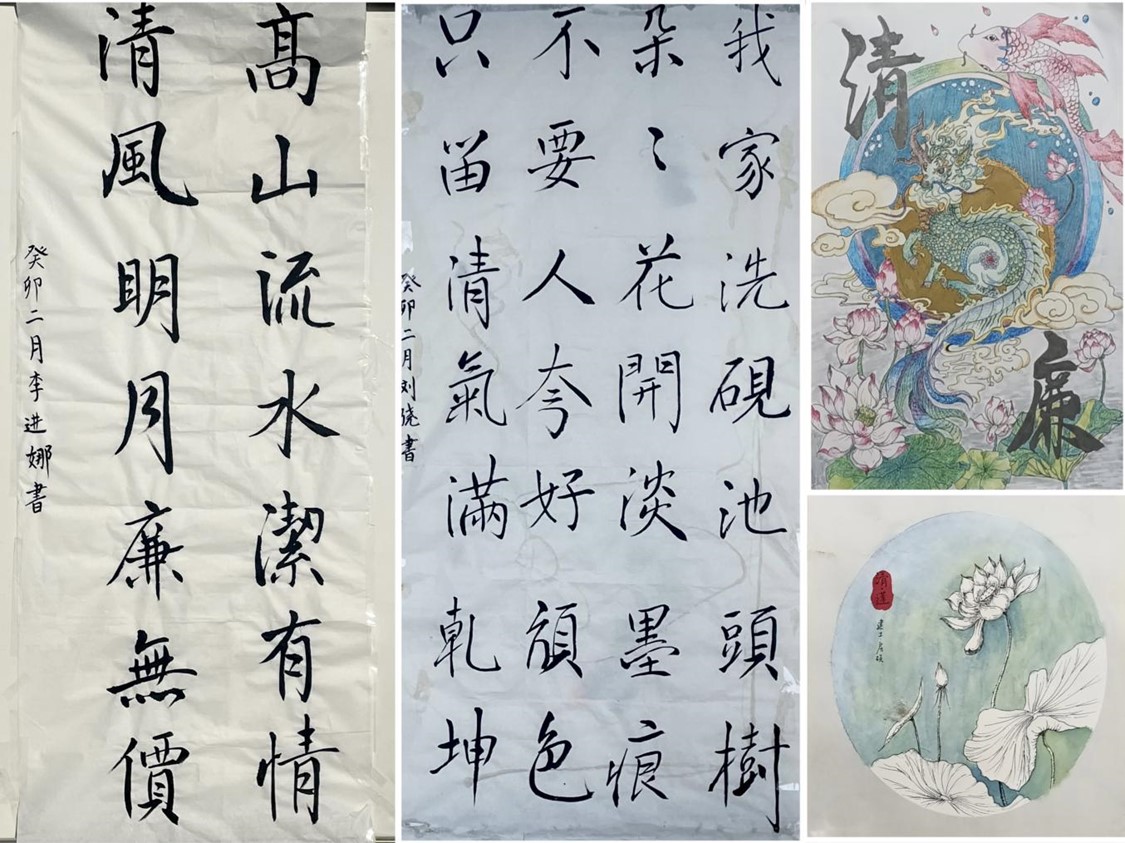 高山流水潔有情
清風明月廉無價
癸卯二月李进娜書
我家洗硯池頭樹
朵〻花開淡墨痕
不要人夸好顔色
只留清氣滿乾坤
癸卯二月刘骁書
清
廉
清莲